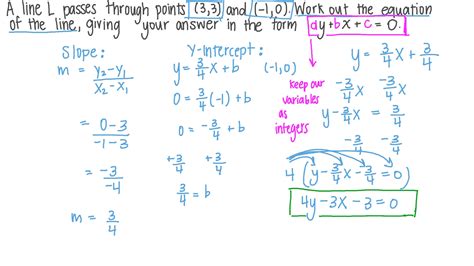 A line L passes through points (3,3) and (-1,0). Work out the equation
of the line, giving your answer in the form ay+bx+c=0.
Slope:
m = y₂-y₁ / x₂-x₁
= 0-3 / -1-3
= -3 / -4
m = 3/4
Y-Intercept:
y = 3/4 x + b (-1,0)
0 = 3/4 (-1) + b
0 = -3/4 + b
+3/4 +3/4
3/4 = b
keep our
variables
as
integers
y = 3/4 x + 3/4
-3/4 x -3/4 x
y - 3/4 x = 3/4
-3/4 -3/4
4 ( y - 3/4 x - 3/4 = 0 )
4y - 3x - 3 = 0